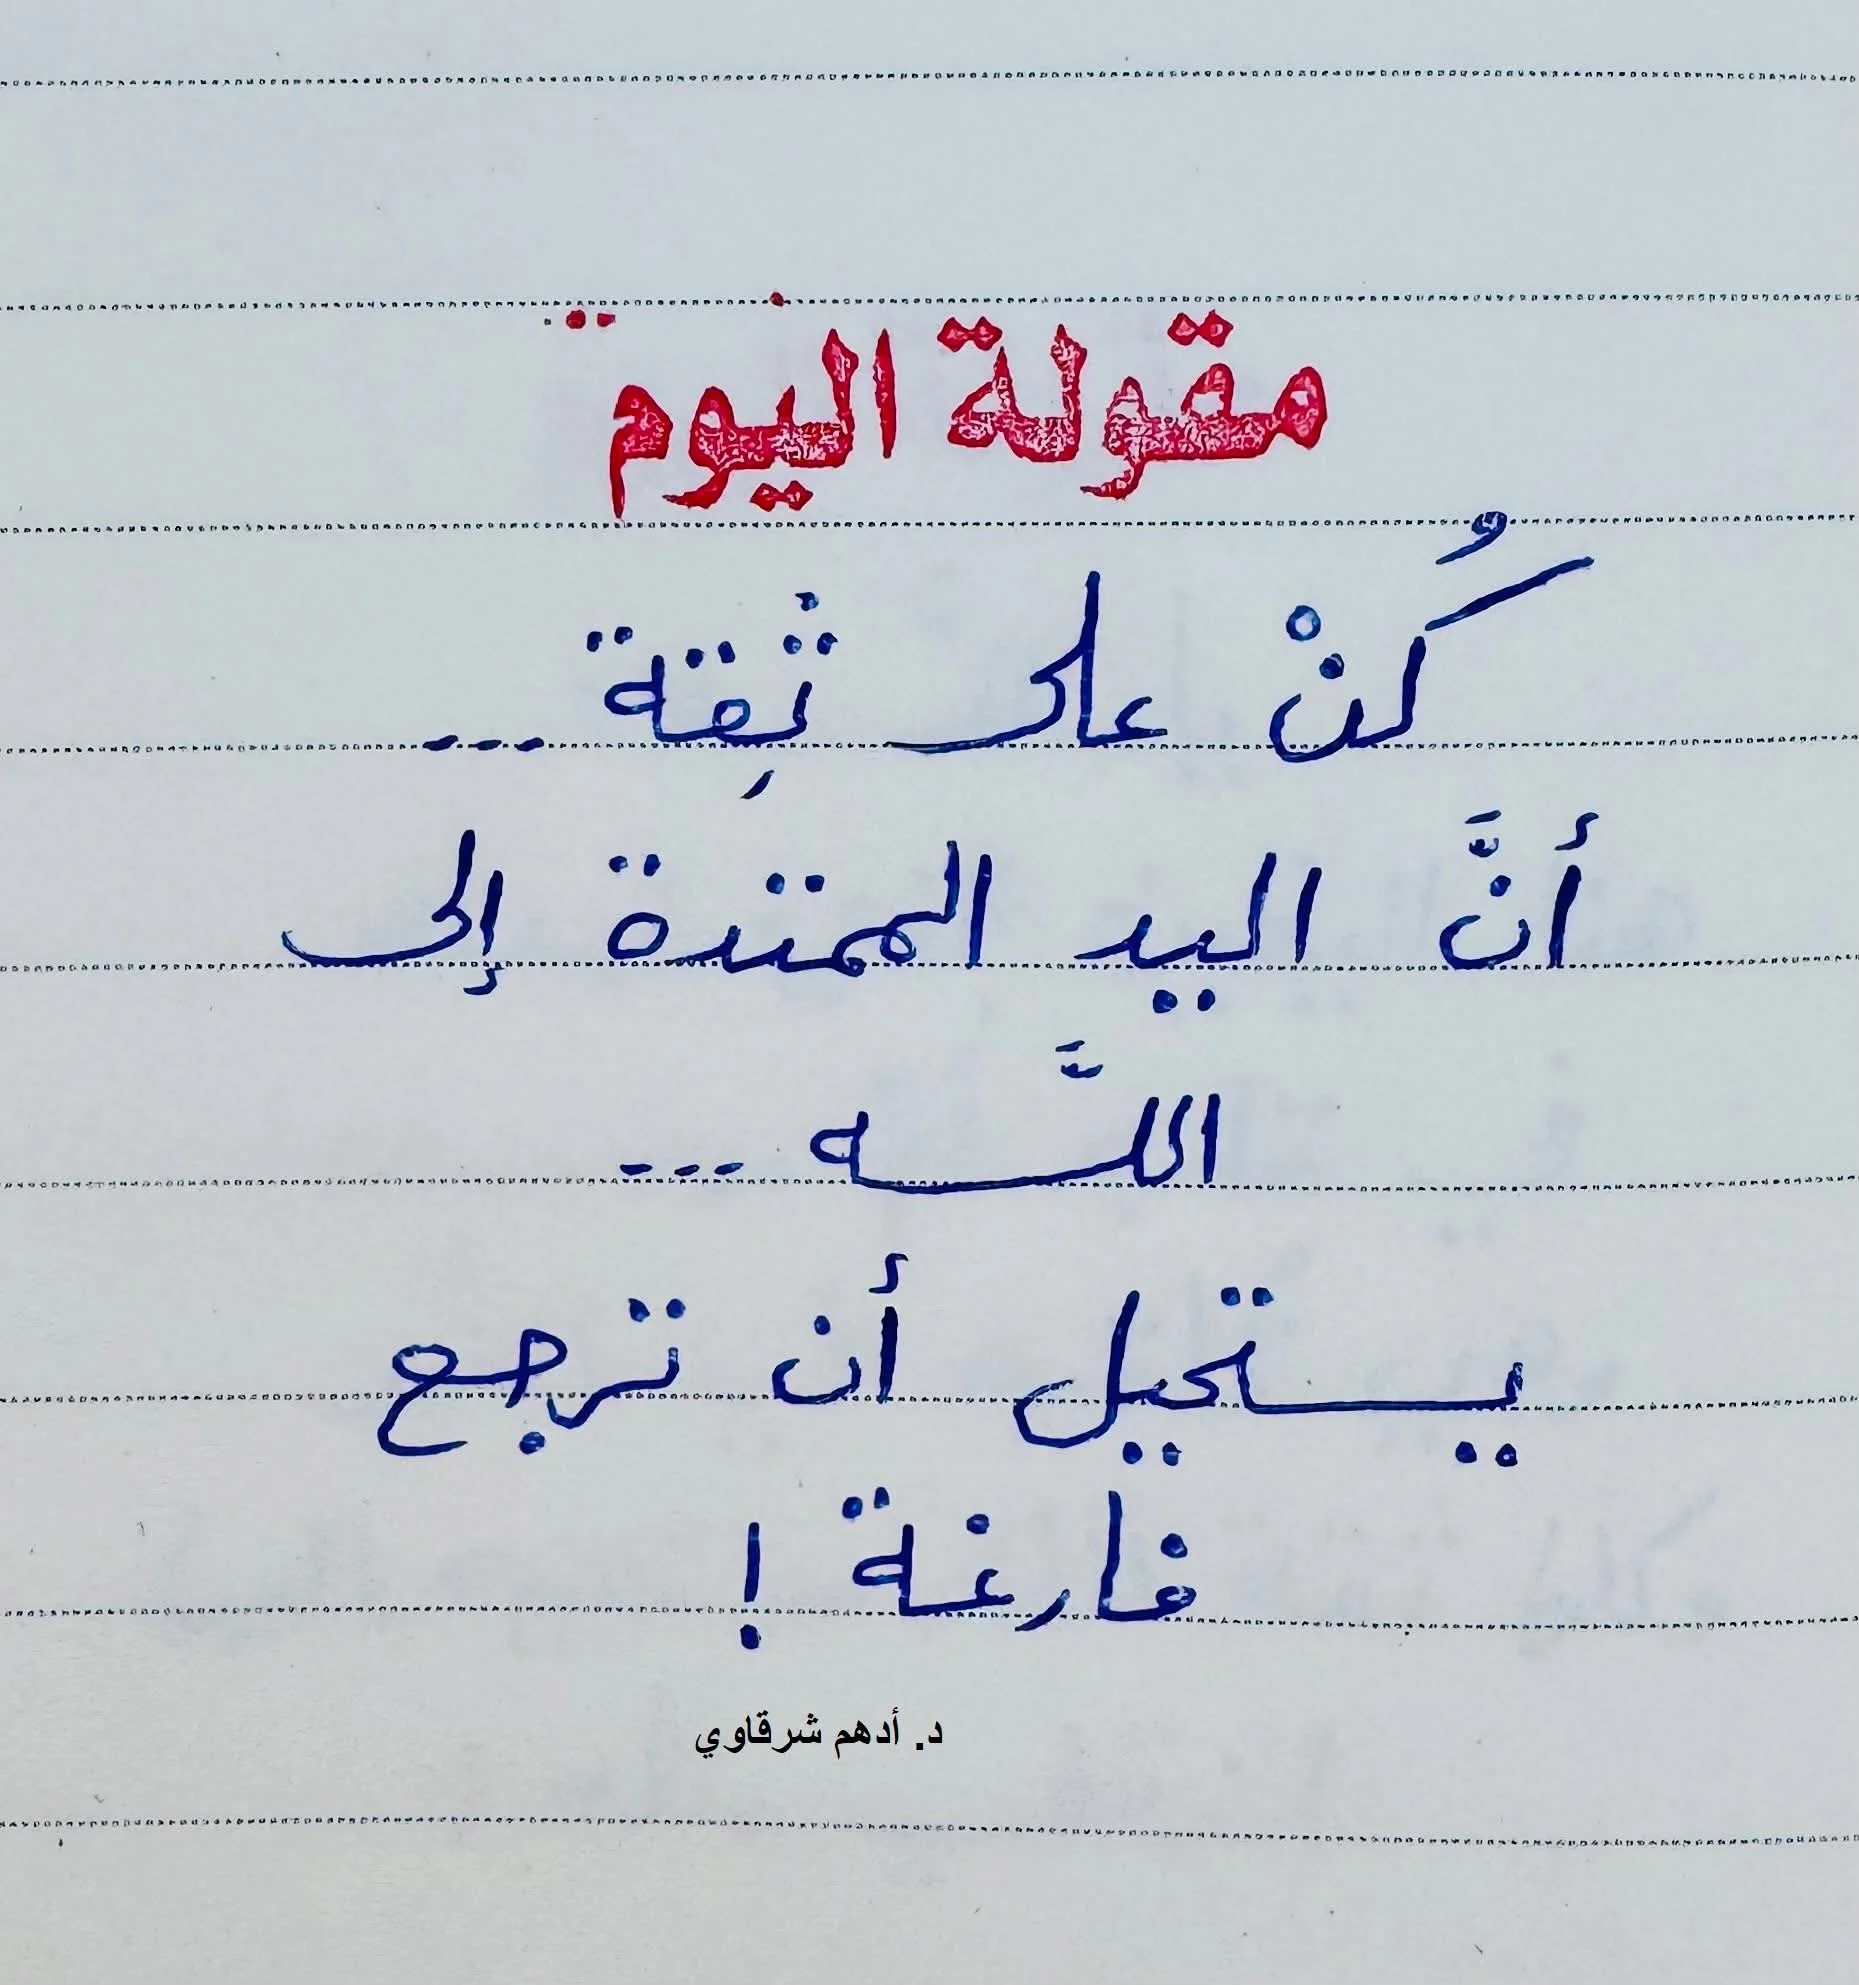 مقولة اليوم
كُنْ على ثِقة ...
أنَّ اليد الممتدة إلى
اللَّه ...
يستحيل أن ترجع
فارغة !
د. أدهم شرقاوي